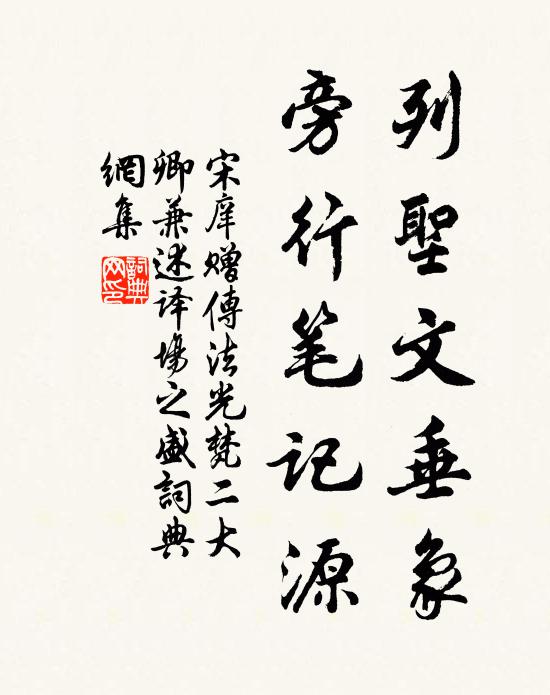 列聖文垂象
旁行笔記源
宋庠赠傳法光梵二大
卿兼述译場之盛詞典
網集
詞典網印